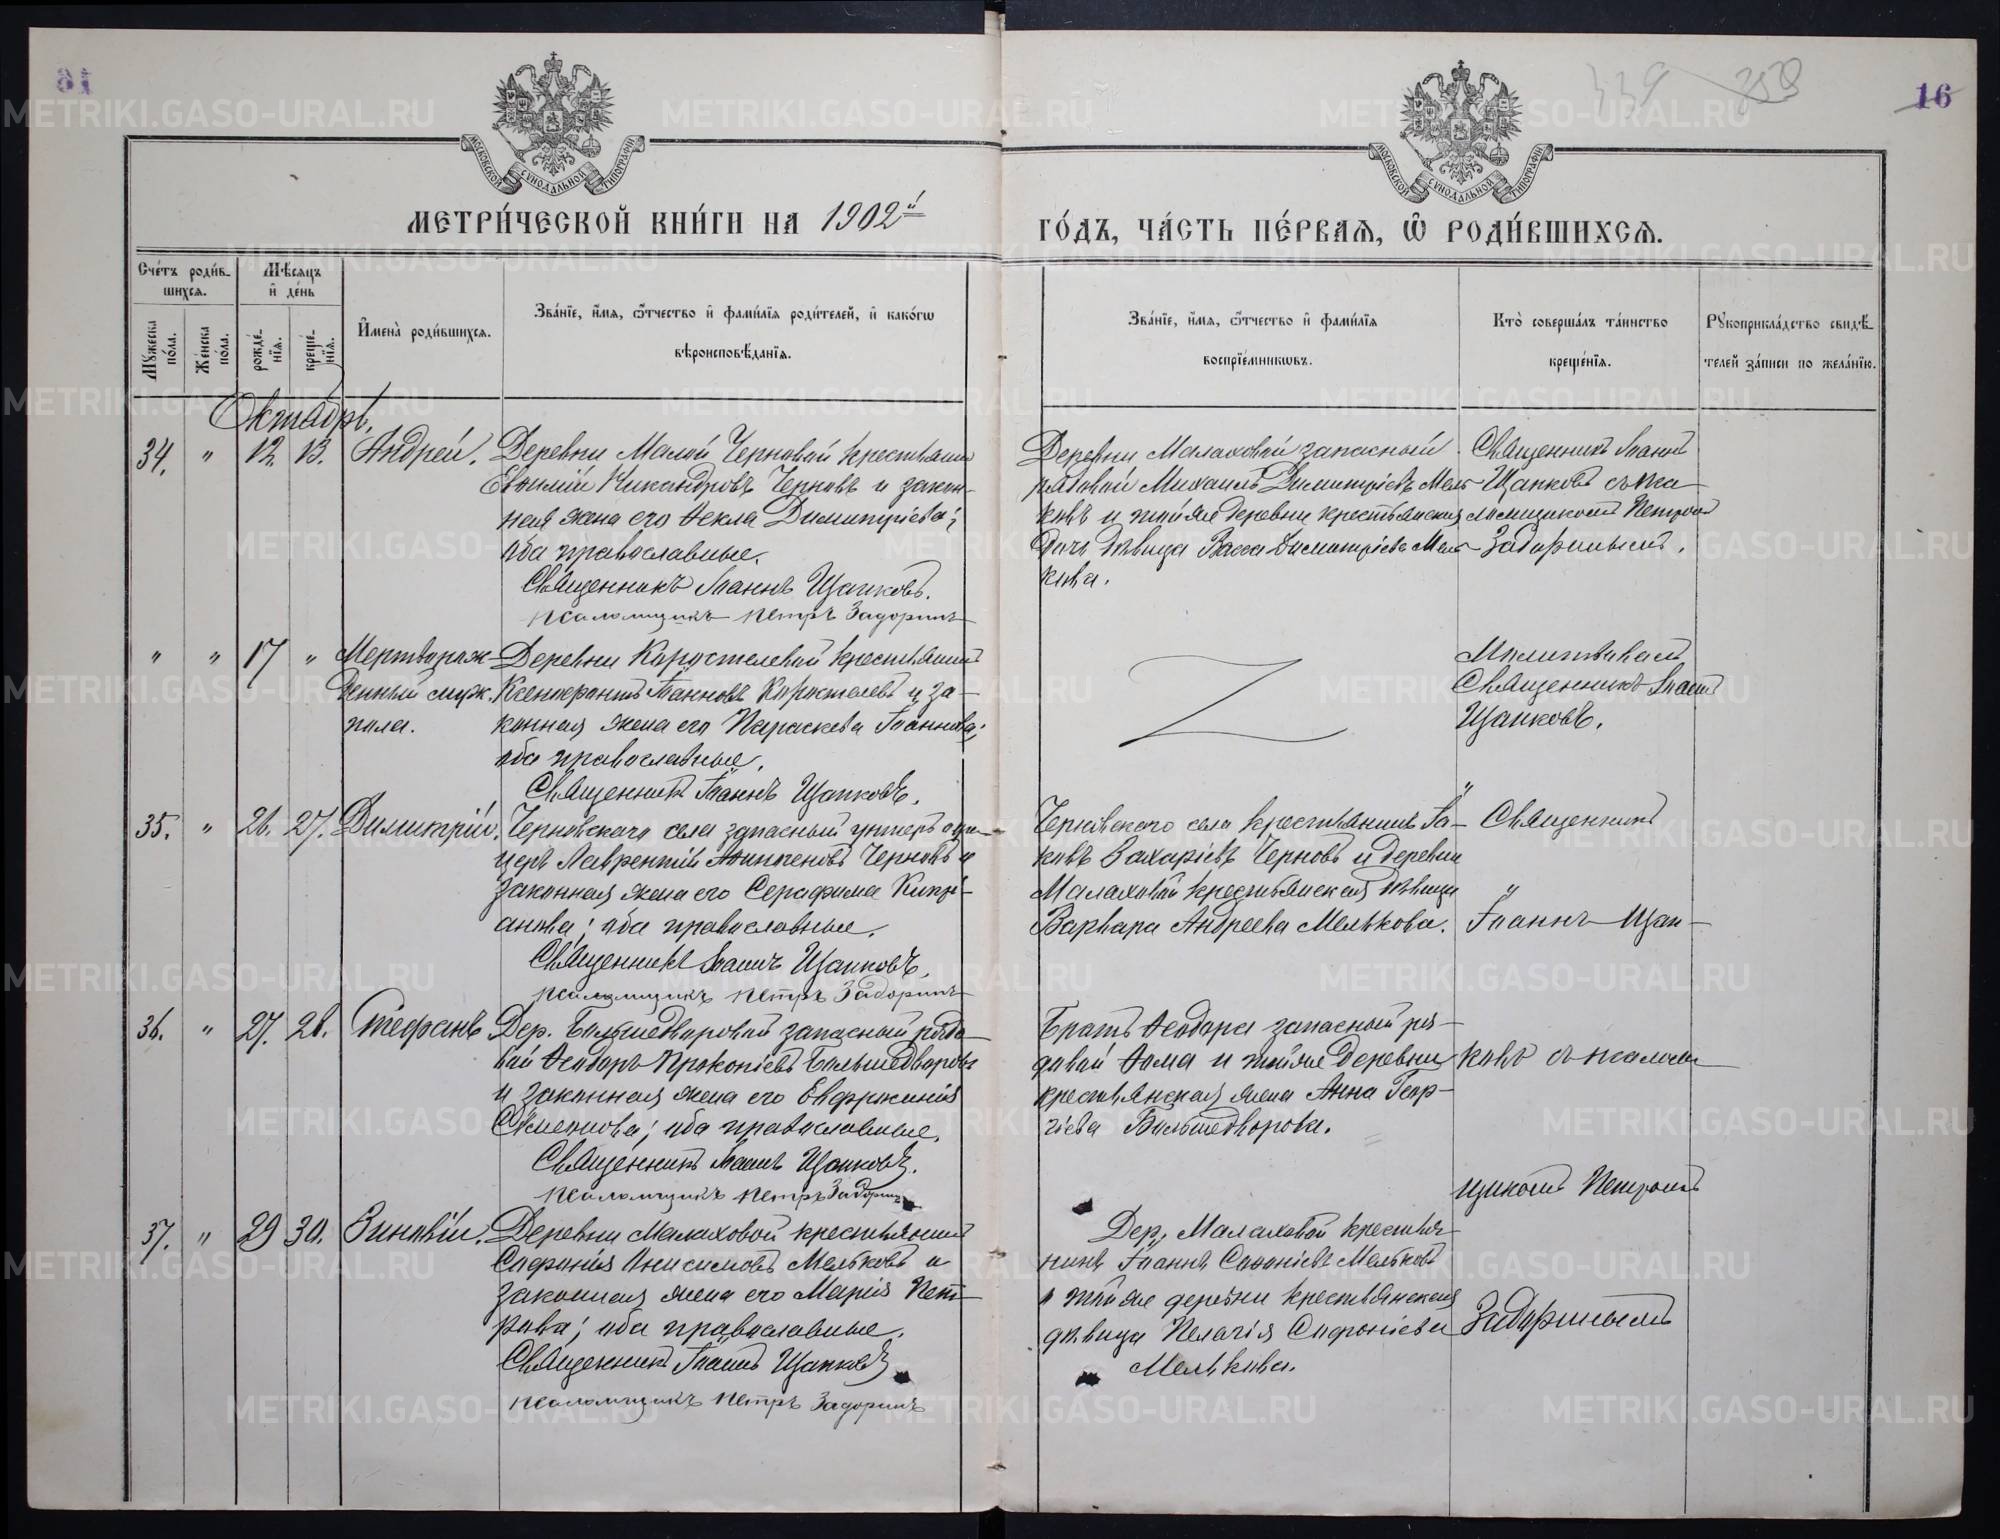 16
339 358
МЕТРИ́ЧЕСКОЙ КНИ́ГИ НА 1902й ГО́ДЪ, ЧА́СТЬ ПЕ́РВАЯ, Ѡ РОДИ́ВШИХСЯ.
МОСКОВСКОЙ СѴНОДАЛЬНОЙ ТИПОГРАФІИ
МОСКОВСКОЙ СѴНОДАЛЬНОЙ ТИПОГРАФІИ
Сче́тъ роди́в-
шихся.
Мѣ́сяцъ
и҆ де́нь
Мꙋ́жеска по́ла.
Же́нска по́ла.
рожде́-нїя.
креще́-нїя.
И҆мена̀ роди́вшихся.
Зва́нїе, и҆́мя, ѻ҆́тчество и҆ фами́лїя роди́телей, и҆ како́гѡ
вѣроисповѣ́данїя.
Зва́нїе, и҆́мя, ѻ҆́тчество и҆ фами́лїя
воспрїе́мникѡвъ.
Кто̀ соверша́лъ та́инство
креще́нїя.
Рꙋкоприкла́дство свидѣ́-
телей за́писи по жела́нїю.
Октябрь.
34. " 12. 13. Андрей.
Деревни Малой Черновой крестьянинъ
Евѳимій Никандровъ Черновъ и закон-
ная жена его Ѳекла Димитріева;
оба православные.
Священникъ Іоаннъ Щапковъ.
Псаломщикъ Петръ Задоринъ
Деревни Малаховой запасный
рядовой Михаилъ Димитріевъ Мель-
ковъ и той же деревни крестьянская
дочь дѣвица Васса Димитріева Мель-
кова.
Священникъ Іоаннъ
Щапковъ съ пса-
ломщикомъ Петромъ
Задоринымъ.
" " 17 " Мертворож-
денный муж.
пола.
Деревни Коростелевой крестьянинъ
Ксенофонтъ Іоанновъ Коростелевъ и за-
конная жена его Параскева Іоаннова;
оба православные.
Священникъ Іоаннъ Щапковъ.
Молитвовалъ
Священникъ Іоаннъ
Щапковъ.
35. " 26. 27. Димитрій.
Черновскаго села запасный унтеръ офи-
церъ Лаврентій Черновъ и
законная жена его Серафима Кипрі-
анова; оба православные.
Священникъ Іоаннъ Щапковъ.
Псаломщикъ Петръ Задоринъ
Черновскаго села крестьянинъ Іа-
ковъ Захаріевъ Черновъ и деревни
Малаховой крестьянская дѣвица
Варвара Андреева Мелькова.
"
Священникъ
"
Іоаннъ Щап-
36. " 27. 28. Стефанъ
Дер. Большедворовой запасный рядо-
вой Ѳеодоръ Прокопіевъ Большедворовъ
и законная жена его Евфросинія
Симеонова; оба православные.
Священникъ Іоаннъ Щапковъ.
Псаломщикъ Петръ Задоринъ
Братъ Ѳеодора запасный ря-
довой Ѳома и той же деревни
крестьянская жена Анна Геор-
гіева Большедворова.
ковъ съ псалом-
щикомъ Петромъ
37. " 29 30. Зиновій.
Деревни Малаховой крестьянинъ
Софонія Онисимовъ Мельковъ и
законная жена его Марія Пет-
рова; оба православные.
Священникъ Іоаннъ Щапковъ
Псаломщикъ Петръ Задоринъ
Дер. Малаховой крестья-
нинъ Іоаннъ Софоніевъ Мельковъ
и той же деревни крестьянская
дѣвица Пелагія Софоніева
Мелькова.
Задоринымъ
METRIKI.GASO-URAL.RU